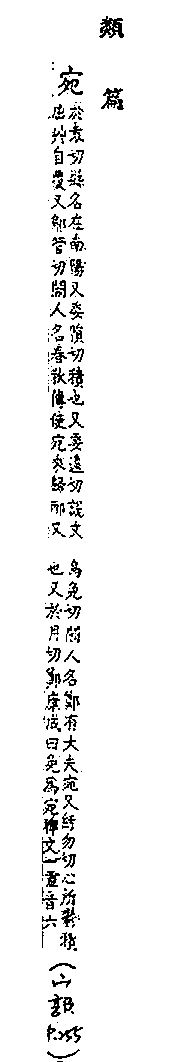 類篇
宛
於袁切縣名在南陽又委隕切積也又委遠切說文
屈艸自覆又鄔管切闕人名春秋傳使宛來歸祊又
烏勉切闕人名鄭有大夫宛又紆勿切心所鬱積
也又於月切鄭康成曰宛為宛釋文一重音六
(宀部 P.255)